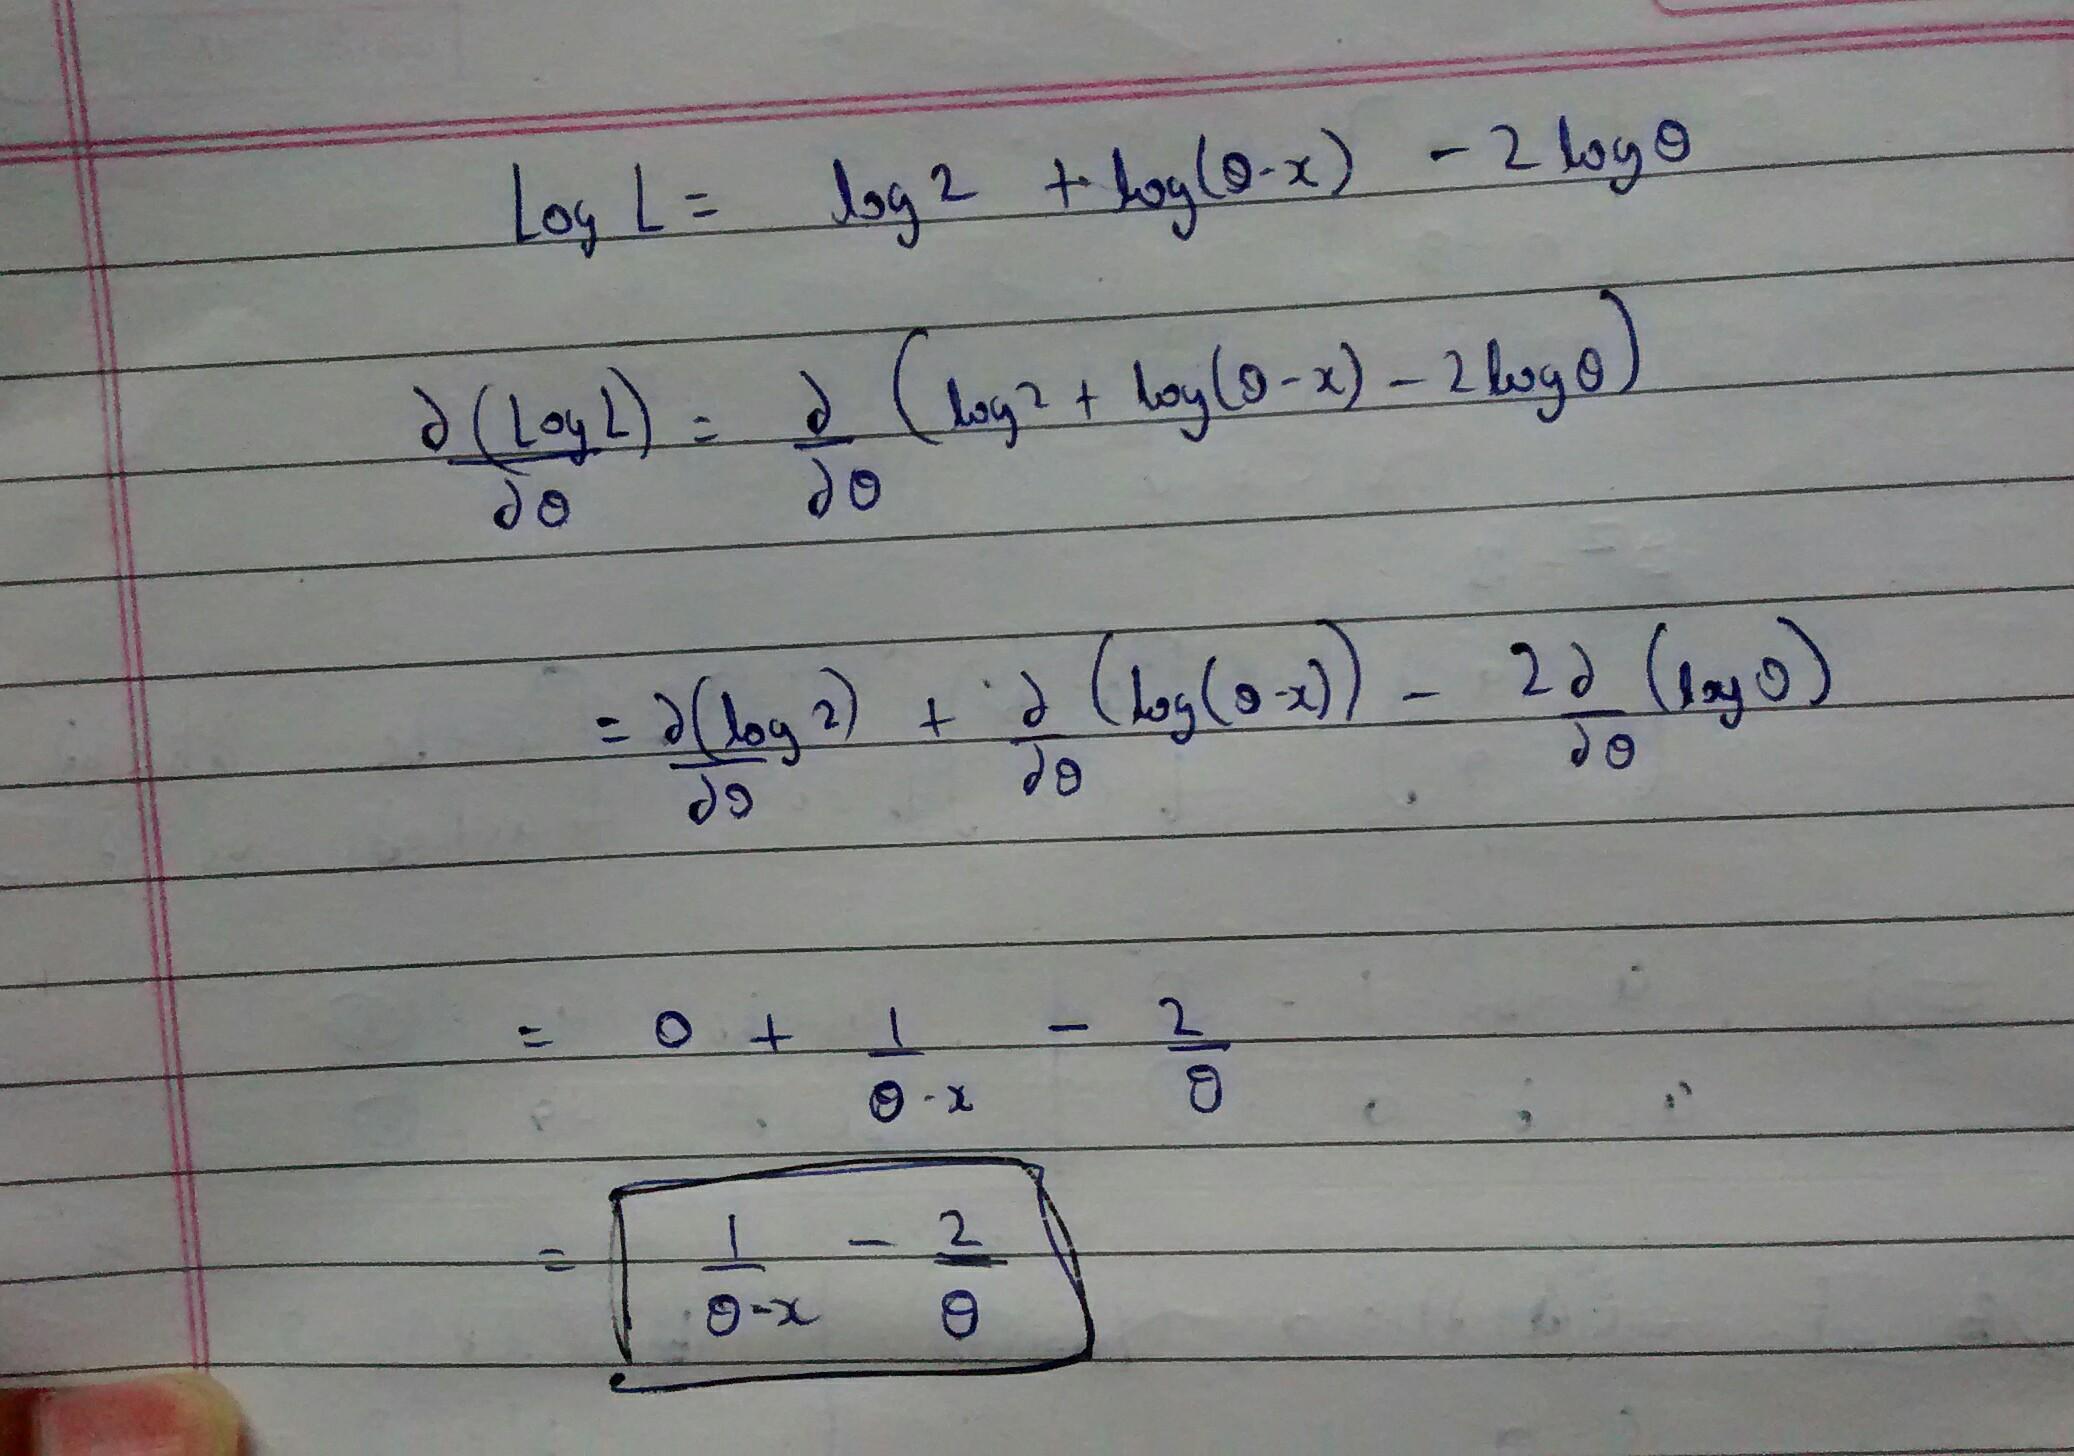 Log L = log 2 + log(θ-x) - 2 log θ
∂(Log L)/∂θ = ∂/∂θ (log 2 + log(θ-x) - 2 log θ)
= ∂(log 2)/∂θ + ∂/∂θ (log(θ-x)) - 2∂/∂θ (log θ)
= 0 + 1/(θ-x) - 2/θ
= 1/(θ-x) - 2/θ